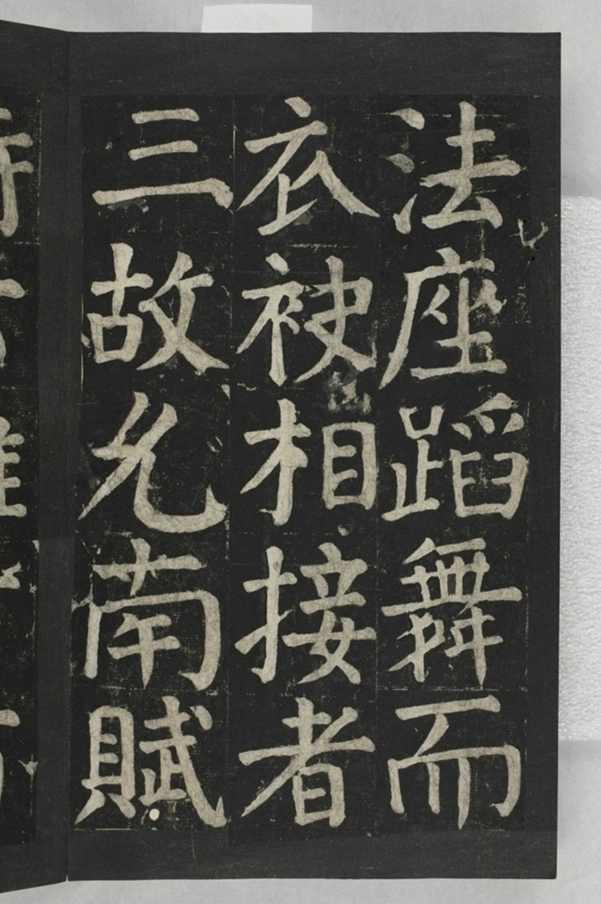 法座蹈舞而
衣袂相接者
三故允南賦